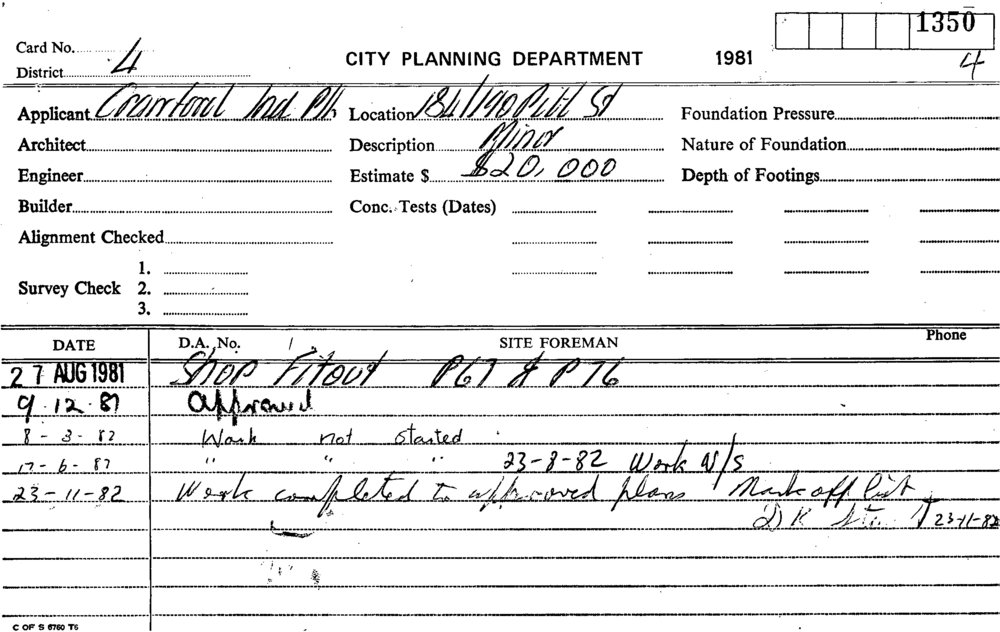 1350
4
Card No.
District 4
CITY PLANNING DEPARTMENT 1981
Applicant Ind P/L Location 184/190 Pitt St Foundation Pressure
Architect Description Minor Nature of Foundation
Engineer Estimate $ $20,000 Depth of Footings
Builder Conc. Tests (Dates)
Alignment Checked
1.
Survey Check 2.
3.
DATE D.A. No. SITE FOREMAN Phone
27 AUG 1981 Shop Fitout P67 & P76
9.12.81 Approved
8-3-82 Work not started
17-6-82 " " " 23-8-82 Work N/S
23-11-82 Work completed to approved plans Mark off list
D K 23-11-82
C OF S 6760 T6